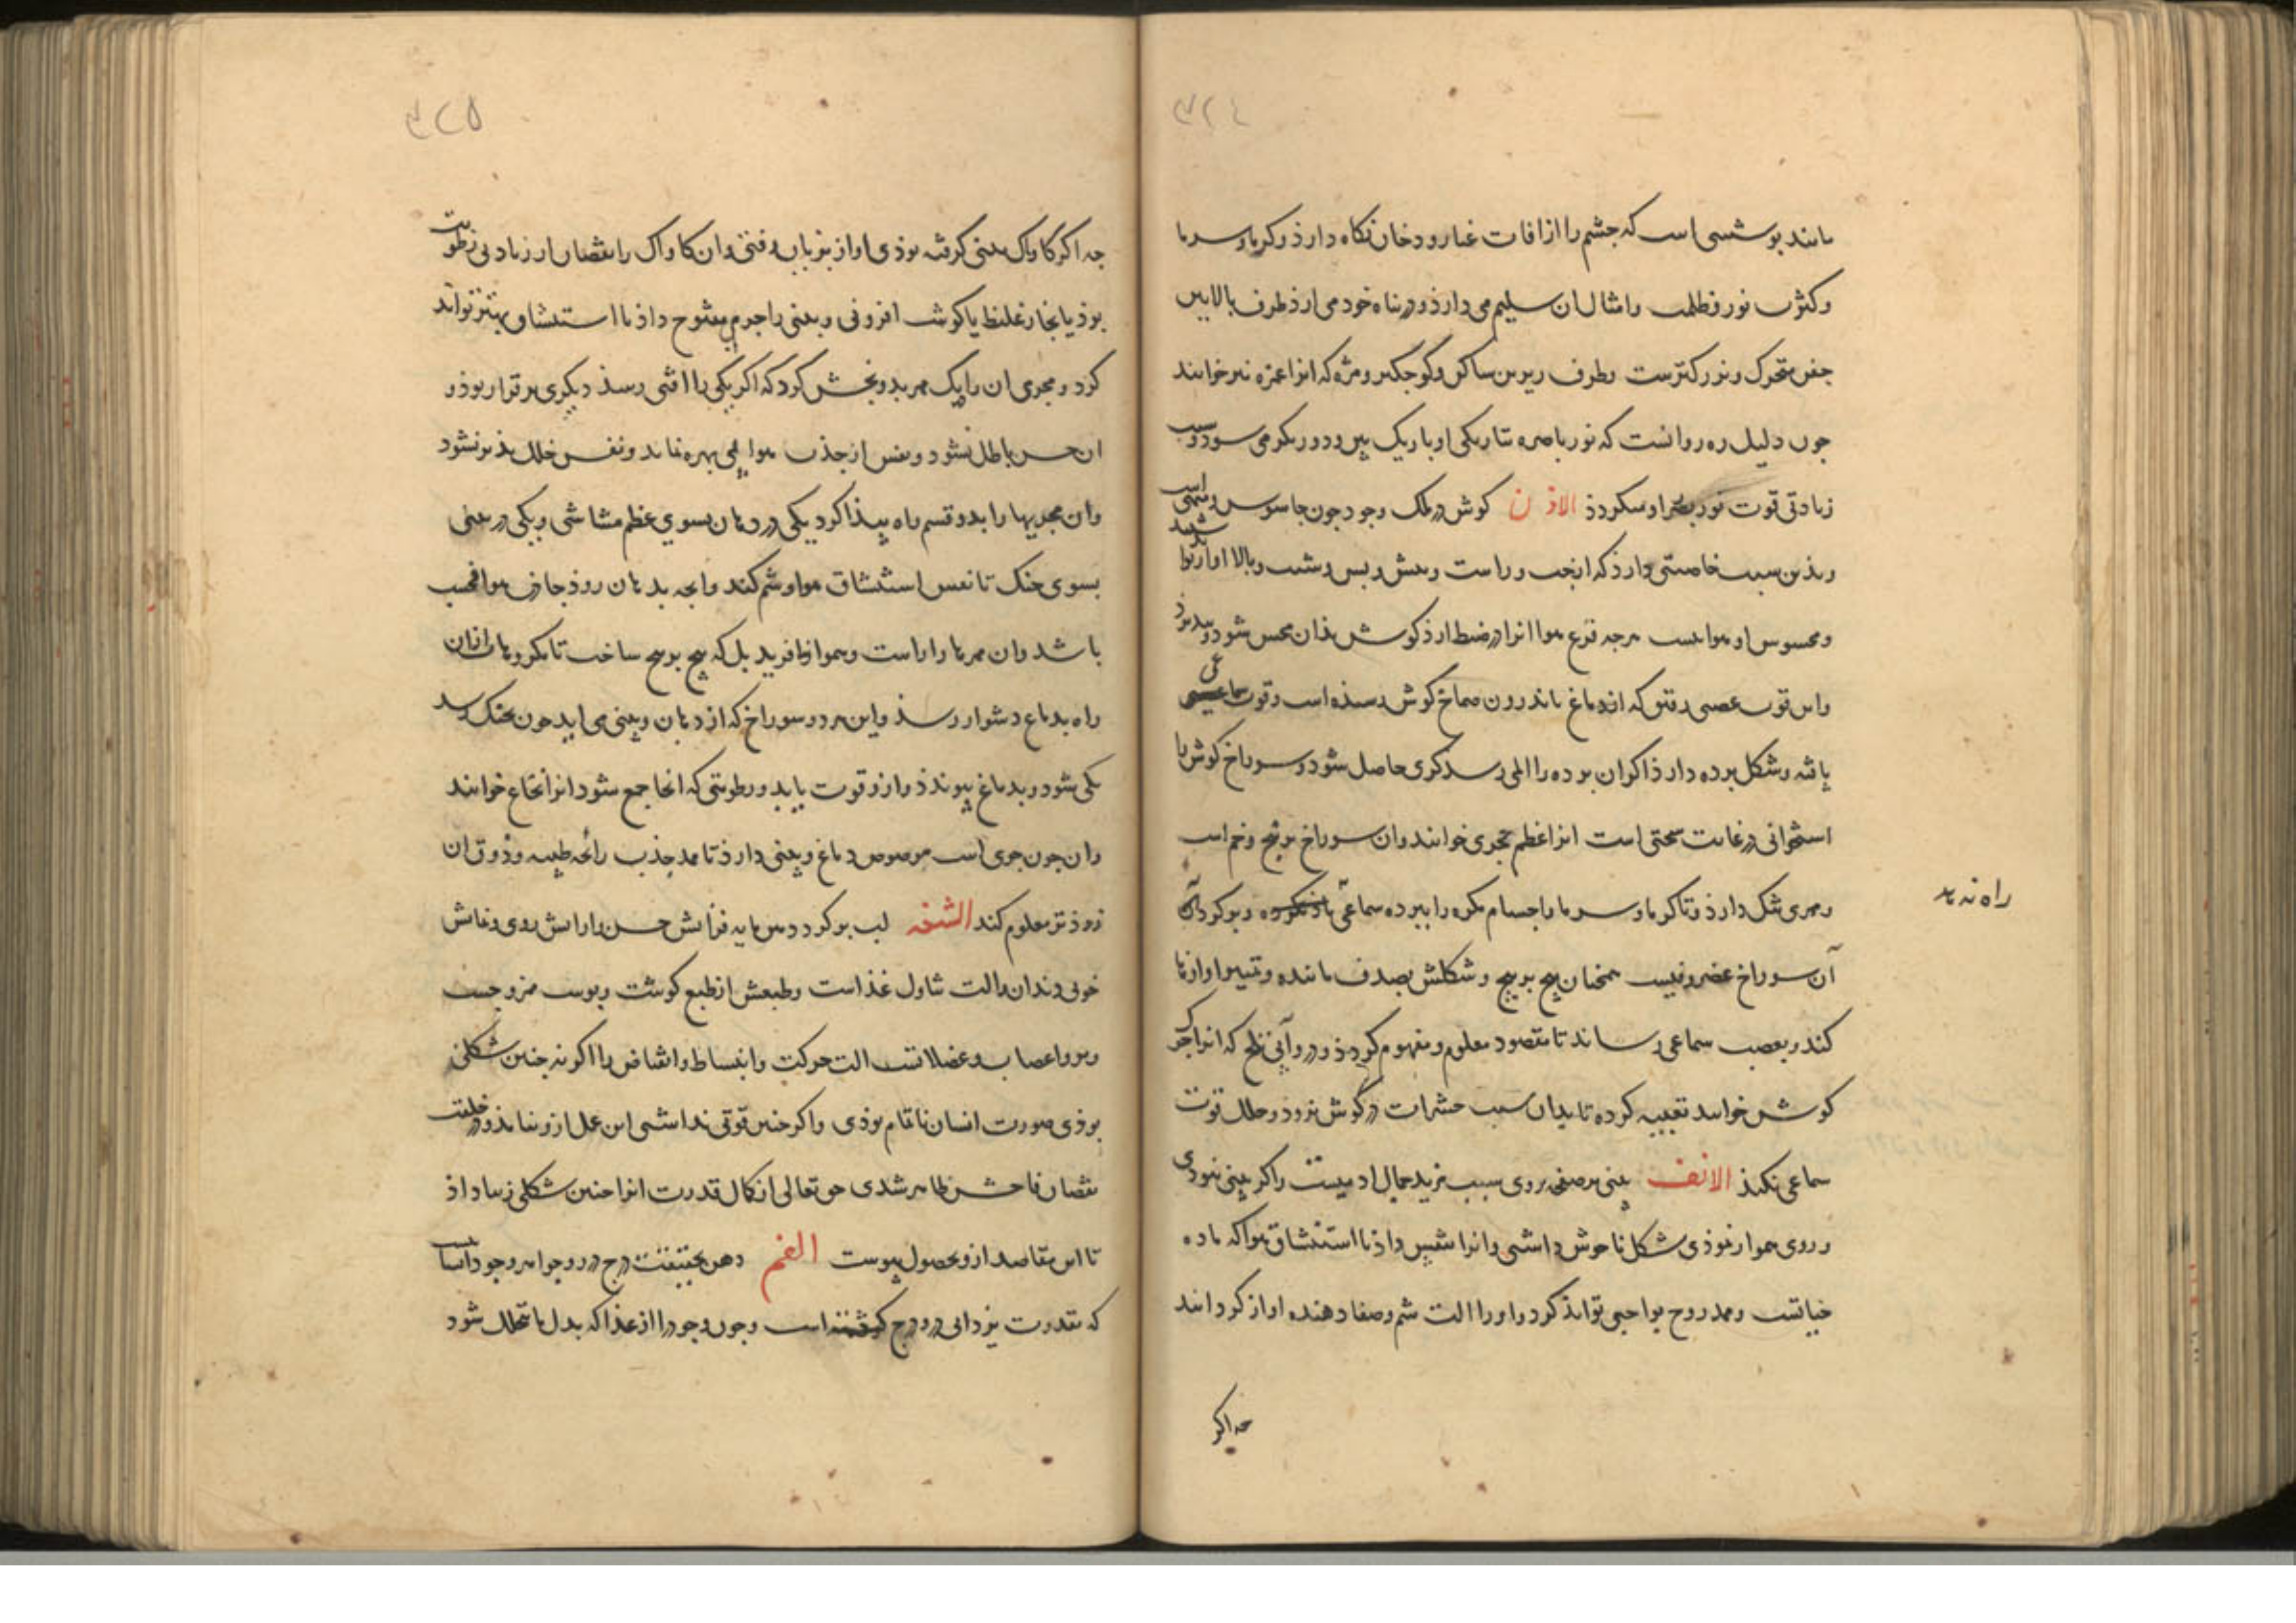 ۳۲۴
مانند پوششی است که جشم را از افات غبار و دخان نکاه دارذ و کرما و سرما
و کثرت نور و ظلمت و امثال ان سلیم می دارذ و در بناه خود می ارذ طرف بالایین
جفن متحرک و بزرکترست و طرف زیرین ساکن و کوجکتر و مژه که انرا غمزه نیز خوانند
جون دلیل ره روانست که نور باصره بتاریکی او باریک بین و دوربین می شود و سبب
زیادتی قوت نور بصر او میکردد الاذن کوش در ملک وجود جون جاسوس و منهی است
و بذین سبب خاصیتی دارذ که از جب و راست و پیش و پس و شیب و بالا اواز تواند شنید
و محسوس او هواست هرجه قرع هوا انرا در ضبط ارذ کوش بذان محس شود و بپذیرد
و این قوت عصبی رقیق که از دماغ باندرون صماخ کوش رسیده است و قوت سماعی
یافته و شکل پرده دارد اکر ان پرده را المی رسد کری حاصل شود و سوراخ کوش با
استخوانی در غایت سختی است انرا عظم حجری خوانند و ان سوراخ برپیچ و خم است
و ممری تنک دارذ و تا کرما و سرما و اجسام مکره را بپرده سماعی راه ندهد و بر کرد آن
آن سوراخ غضروفیست همجنان پیچ بر پیچ و شکلش بصدف ماننده و تمییز اوازها
کند و بعصب سماعی رساند تا مقصود معلوم و مفهوم کردذ و در و آبی تلخ که انرا چرک
کوش خوانند تعبیه کرده تا بدان سبب حشرات در کوش نروذ و خلل قوت
سماعی نکنذ الانف بینی بر صفحه روی سبب مزید جمال ادمیست و اکر بینی نبودی
و روی هموار بوذی شکل ناخوش داشتی و انرا شیب داذ تا استنشاق هوا که ماده
حیاتست و ممد روح بواجبی تواند کرد و او را الت شم و صفا دهنده اواز کردانید
راه ندهد
جه اکر
۳۲۵
جه اکر کاواک بینی کرفته بوذی اواز بر زبان نرفتی و ان کاواک را نقصان از زیادتی رطوبت
بوذ یا بخار غلیظ یا کوشت افزونی و بینی را جرم مفتوح داذ تا استنشاق بهتر تواند
کرد و مجری ان را یک ممر بدو بخش کرد که اکر یکی را افتی رسذ دیکری برقرار بوذ و
ان حس باطل نشود و نفس از جذب هوا بی بهره نماند و نفس خلل پذیر نشود
و ان مجریها را بدو قسم راه پیذا کرد یکی در دهان بسوی عظم مشاشی و یکی در بینی
بسوی حنک تا نفس استنشاق هوا و شم کند و انجه بدهان روذ جاذب هوا فحسب
باشد و ان ممرها را راست و هموار نافرید بلکه پیچ بر پیچ ساخت تا مکروهات از ان
راه بدماغ دشوار رسذ و این هر دو سوراخ که از دهان و بینی می اید جون بحنک رسد
یکی شود و بدماغ پیوندذ و از و قوت یابد و رطوبتی که انجا جمع شود انرا نخاع خوانند
و ان جون جوی است مرصوص دماغ و بینی دارذ تا ممد جذب رائحه طیبه و ذوق ان
زوذتر معلوم کند الشفه لب بر کرد دهن مایه فزایش حسن و ارایش روی و نمایش
خوبی دندان و الت تناول غذاست و طبعش از طبع کوشت و پوست ممزوجست
و برو اعصاب و عضلاتست الت حرکت و انبساط و انقباض را اکر نه جنین شکلی
بوذی صورت انسان ناتمام بوذی و اکر جنین قوتی نداشتی این عمل ازو نیامذی و در خلقت
نقصان فاحش ظاهر شدی حق تعالی از کمال قدرت انرا جنین شکلی زیبا داذ
تا این مقاصد ازو بحصول پیوست الفم دهن بحقیقت درج در و جواهر وجود انسان است
که بقدرت یزدانی در و درج کشته است و جون وجود را از غذا که بدل ما یتحلل شود